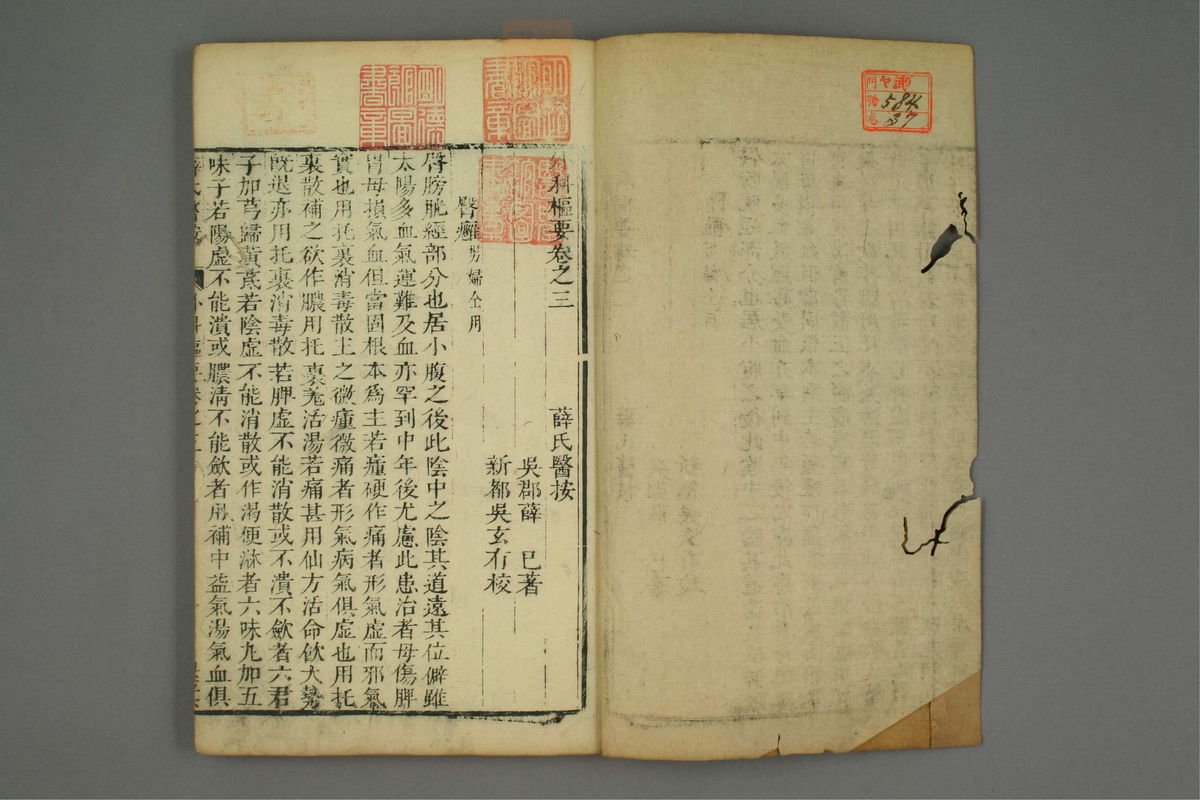 外科樞要卷之三 薛氏醫按
吳郡薛 已著
新都吳玄有校
臀癰男婦仝用
臀膀胱經部分也居小腹之後此陰中之陰其道遠其位僻雖
太陽多血氣運難及血亦罕到中年後尤慮此患治者毋傷脾
胃毋損氣血但當固根本爲主若瘇硬作痛者形氣虛而邪氣
實也用托裏消毒散主之微瘇微痛者形氣病氣俱虛也用托
裏散補之欲作膿用托裏羗活湯若痛甚用仙方活命飲大勢
既退亦用托裏消毒散若脾虛不能消散或不潰不斂者六君
子加芎歸黃芪若陰虛不能消散或作渴便淋者六味丸加五
味子若陽虛不能潰或膿清不能斂者用補中益氣湯氣血俱
584
37